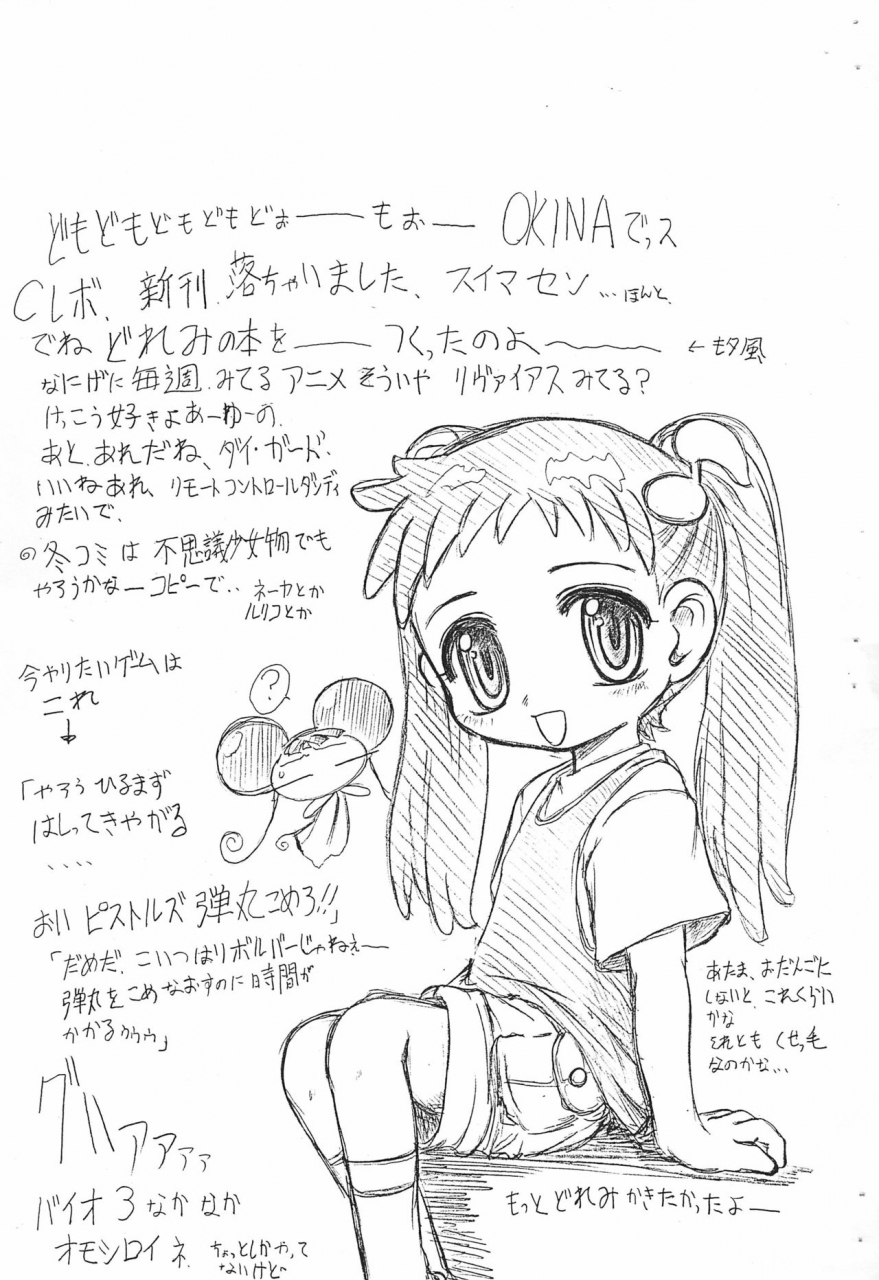 どもどもどもどもどぉーーもぉー OKINAでっス
Cレボ、新刊 落ちゃいました、スイマセソ …ほんと、
でねどれみの本をーー つくったのよーーー ←モタ風
なにげに毎週 みてるアニメ そういや リヴァイアスみてる?
けっこう好きよあーゆーの、
あと、あれだね、ダイ・ガード、
いいねあれ、リモートコントロールダンディ
みたいで、
の冬コミは 不思議少女物でも
やろうかなーコピーで‥
ネーヤとか
ルリコとか
今やりたいゲームは
これ
↓
?
「やろう ひるまず
はしってきやがる
‥‥
おい ピストルズ 弾丸こめろ!!」
「だめだ、こいつはリボルバーじゃねぇー
弾丸をこめなおすのに時間が
かかるゥゥゥ」
グハァァァァ
バイオ3なかなか
オモシロイネ ちょっとしかやって
ないけど
あたま、おだんごに
しないと、これくらい
かな
それとも くせっ毛
なのかな…
もっと どれみ かきたかったよー